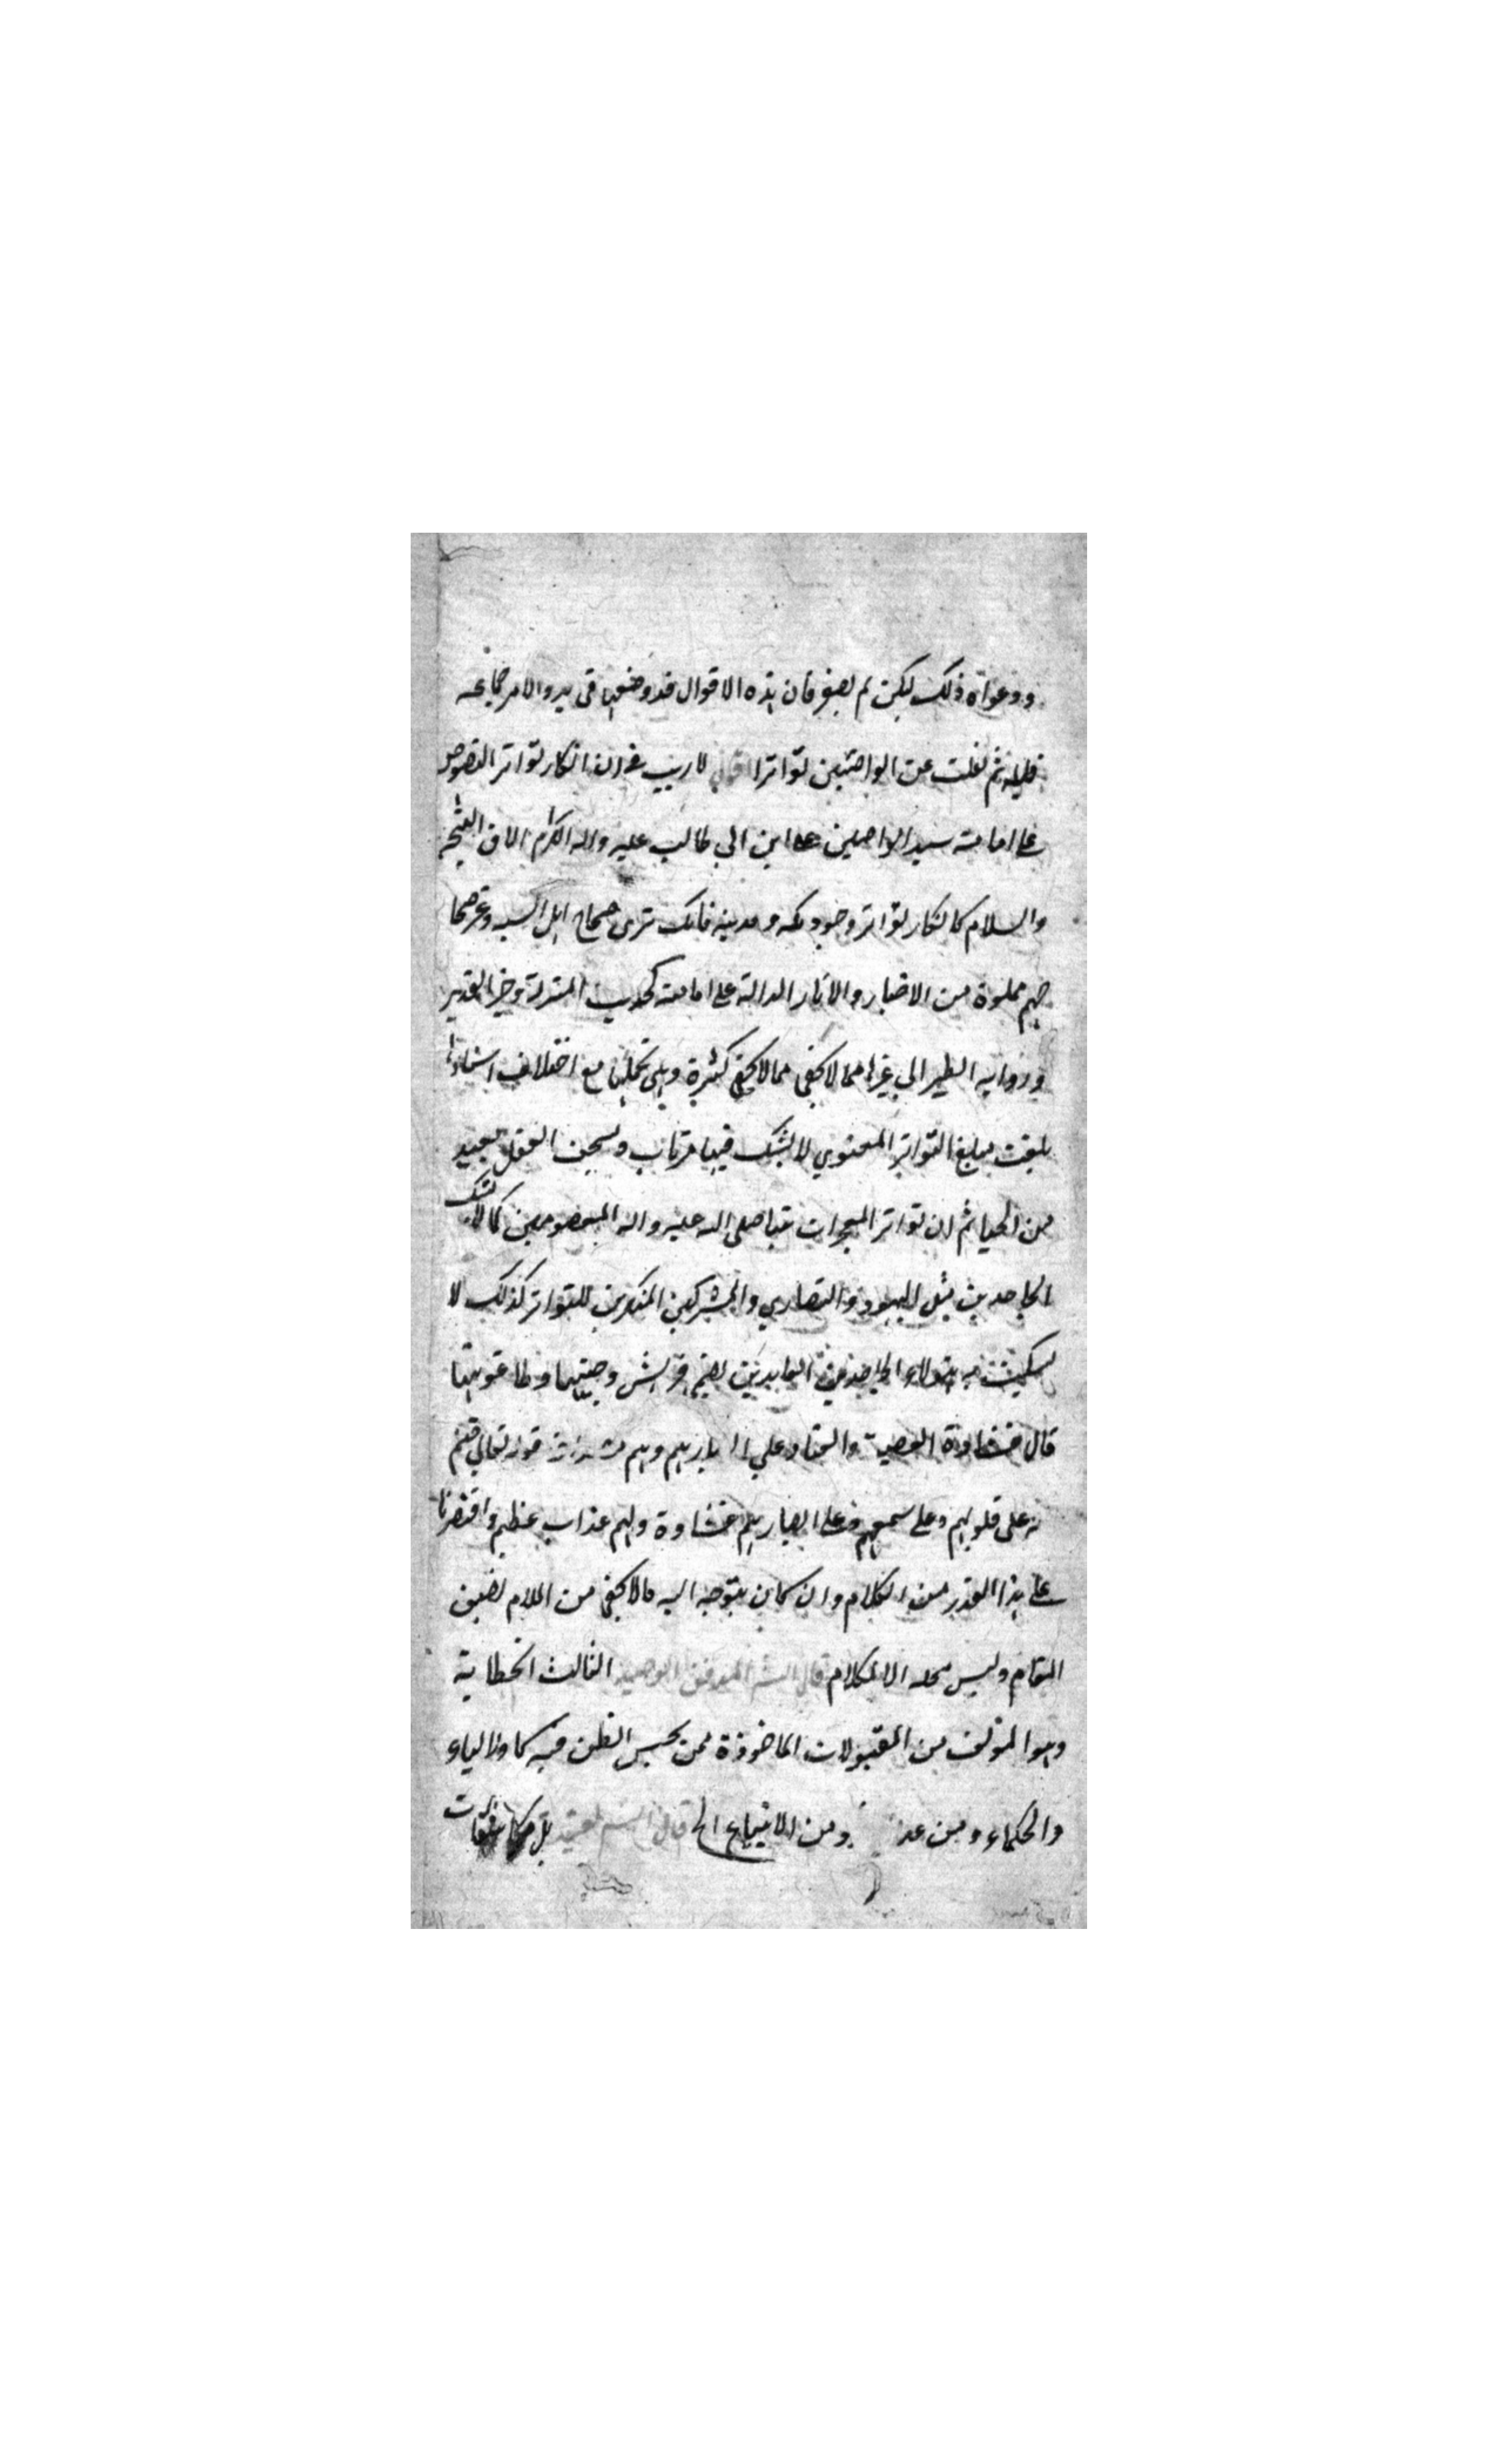 ودعواه ذلك لكن لم يصغر فان هذه الاقوال قد وضعها في بدو الامر جماعه
قليله ثم نقلت عن الواضعين تواترا اقول لا ريب في ان انكار تواتر النصوص
على امامته سيد الواصلين على ابن ابي طالب عليه واله الكرام الاف التحية
والسلام كانكار تواتر وجود مكه ومدينه فانك ترى صحاح اهل السنه وغير صحا
حهم مملوة من الاخبار والاثار الدالة على امامته كحديث المنزلة وخبر الغدير
ورواية الطير الى غيرها مما لا يخفى كثرة وهي بجملتها مع اختلاف اسنادها
بلغت مبلغ التواتر المعنوي لا يشك فيها مرتاب العقل بعيد
من الحيا ثم ان تواتر المعجزات صلى الله عليه واله المعصومين كما لا يشك
الجاحدين مثل اليهود والنصارى والمشركين المنكرين للتواتر كذلك لا
به هولاء الجاحدين المعاندين لصنم قريش وجبتيها وطاغوتيها
قال غشاوة العصبية والعناد على ابصارهم وهم قوله تعالى ختم
الله على قلوبهم وعلى سمعهم وعلى ابصارهم غشاوة ولهم عذاب عظيم واقتصرنا
على هذا القدر من الكلام وان كان يتوجه اليه ما لا يخفى من الملام لضيق
المقام وليس محله الا الكلام قال الثالث الخطابية
وهو المولف من المقبولات الماخوذة ممن يحسن الظن فيه كالاولياء
والحكماء ومن عد ومن الانبياء الخ قال